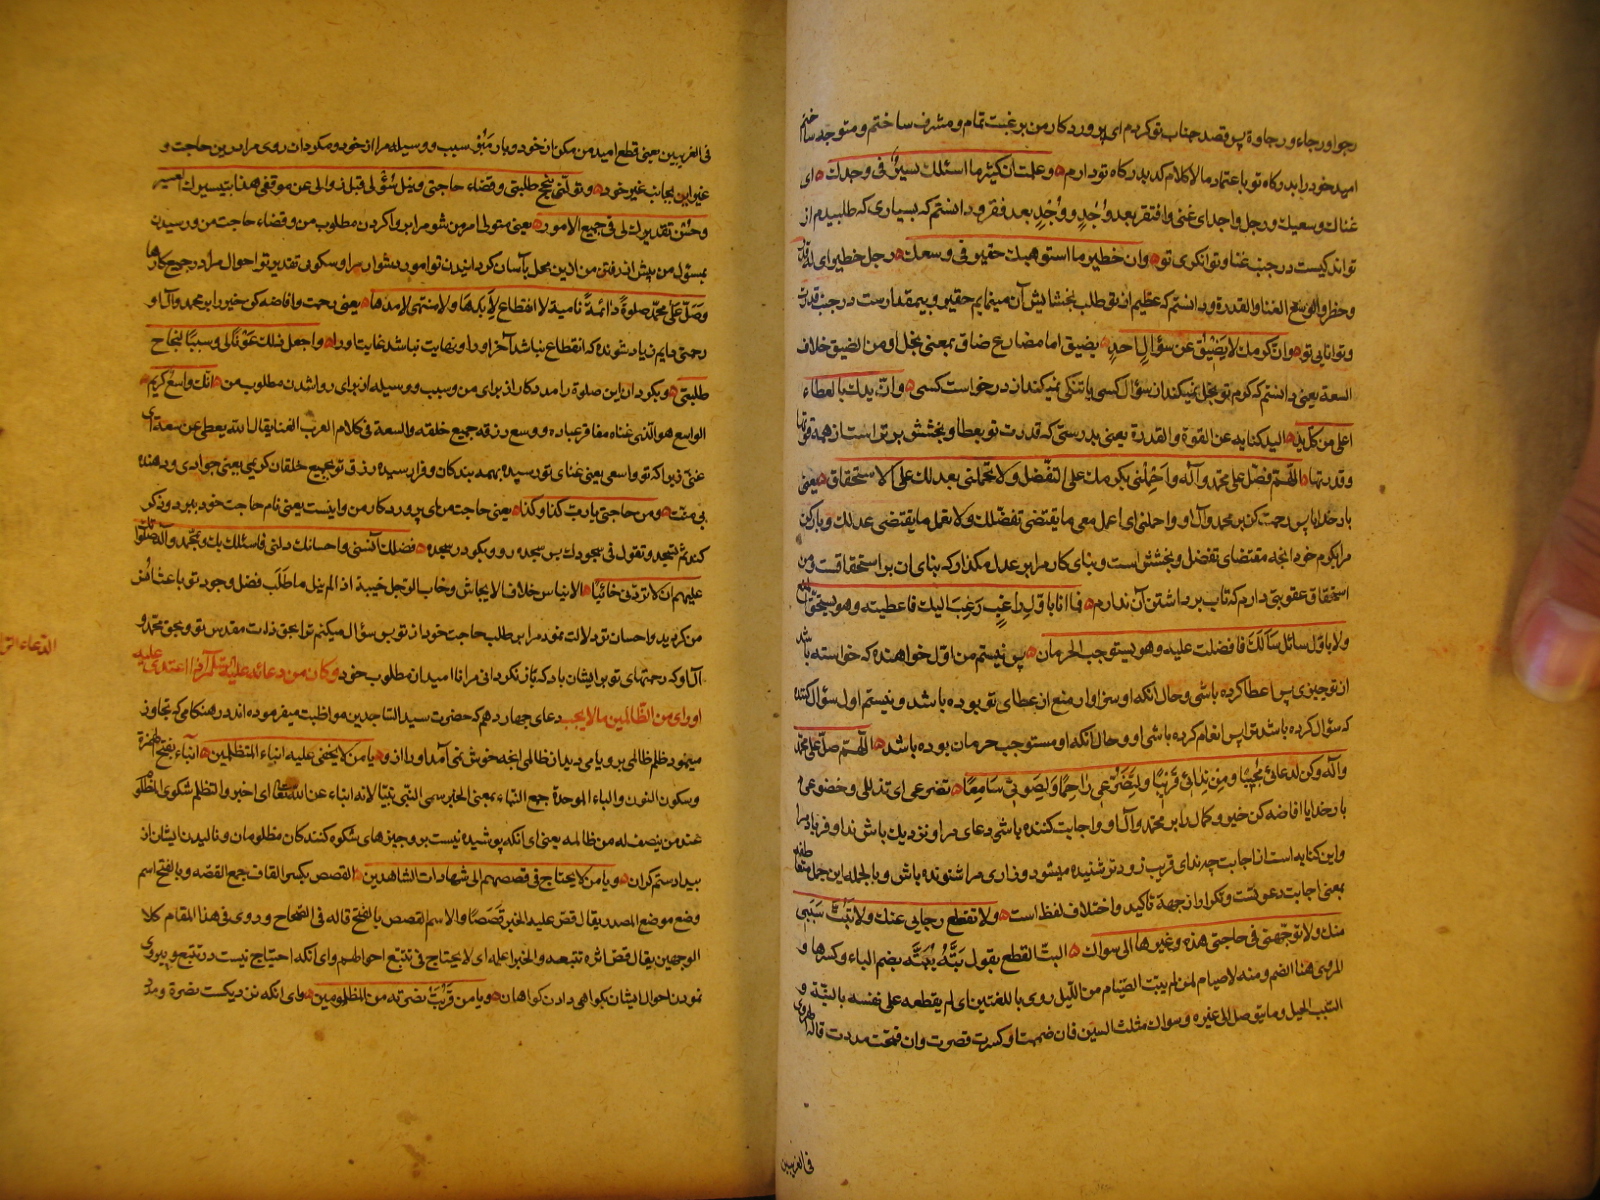 رجوا ورجاء ورجاوة پس قصد جناب تو کردم ای پروردکار من برغبت تمام و مشرف ساختم و متوجه ساختم
امید خود را بدرکاه تو با عتماد ما لا کلام که بدرکاه تو دارم وعلمت ان کثیر ما اسئلک یسیر فی وجدک ای
غناک وسعتک ورجل واجد ای غنی وافتقر بعد وُجْدٍ ووَجْدٍ بعد فقر ودانستم که بسیاری که طلبیدم از
تو اندکیست در جنب غنا وتوانکری تو وان خطیر ما استوهبک حقیر فی وسعک رجل خطیر ای له قدر
وخطر والوسع الغنا والقدرة ودانستم که عظیم از تو طلب بخشایش آن مینمایم حقیر وبیمقدارست در جنب قدرت
وتوانایی تو وان کرمک لا یضیق عن سؤال احد یضیق اما مضارع ضاق بمعنی بخل او من الضیق خلاف
السعة یعنی دانستم که کرم تو بخل نمیکند از سؤال کسی یا تنکی نمیکند از درخواست کسی وان یدک بالعطاء
اعلی من کل ید الید کنایه عن القوة والقدرة یعنی بدرستی که قدرت تو بعطا وبخشش برترست از همه قوتها
وقدرتها اللهم فصل علی محمد وآله واحملنی بکرمک علی التفضل ولا تحملنی بعدلک علی الاستحقاق یعنی
بار خدایا پس رحمت کن بر محمد وآل او واحملنی ای اعمل معی ما یقتضی تفضلک ولا تعمل ما یقتضی عدلک وبار کن
مرا بکرم خود آنچه مقتضای تفضل وبخشش است وبنای کار مرا بر عدل مکذار که بنای ان بر استحقاقست ومن
استحقاق عقوبتی دارم که تاب برداشتن آن ندارم فما انا باول راغب رغب الیک فاعطیته وهو یستحق المنع
ولا باول سائل سألک فافضلت علیه وهو یستوجب الحرمان پس نیستم من اول خواهنده که خواسته باشد
از تو چیزی پس اعطا کرده باشی وحال انکه او سزاوار منع از عطای تو بوده باشد ونیستم اول سؤال کننده
که سؤال کرده باشد ترا پس انعام کرده باشی او وحال انکه او مستوجب حرمان بوده باشد اللهم صل علی محمد
وآله وکن لدعائی مجیبا ومن ندائی قریبا ولتضرعی راحما ولصوتی سامعا تضرعی ای تذللی وخضوعی
بار خدایا افاضه کن خیر وکمال ابر محمد وآل او واجابت کننده باشی دعای مرا ونزدیک باش ندا وفریاد مرا
واین کنایه است از اجابت چه ندای قریب زودتر شنیده میشود وزاری مرا شنونده باش وبالجمله این جمل متعاطفه
بمعنی اجابت دعوتست وتکرار از جهة تاکید واختلاف لفظ است ولا تقطع رجایی عنک ولا تبت سببی
منک ولا توجهنی فی حاجتی هذه وغیرها الی سواک البت القطع یقول بتّه یبتّه بضم الباء وکسرها و
المروی هنا الضم ومنه لا صیام لمن لم یبت الصیام من اللیل روی باللغتین ای لم یقطعه علی نفسه بالنیة و
السبب الحبل وما یتوصل الی غیره وسواک مثلث السین فان ضممت او کسرت قصرت وان فتحت مددت قاله الهروی
فی الغریبین
فی الغریبین یعنی قطع امید من مکن از خود وپاره مَبُر سبب ووسیله مرا از خود ومکردان روی مرا در این حاجت و
غیر این بجانب غیر خود وتولنی بنجح طلبتی وقضاء حاجتی ونیل سؤلی قبل زوالی عن موقفی هذا بتیسیرک العسیر
وحسن تقدیرک لی فی جمیع الامور یعنی متولی امر من شو مرا بروا کردن مطلوب من وقضاء حاجت من ورسیدن
بمسئول من پیش از رفتن من از این محل بآسان کردانیدن تو امور دشوار مرا ونیکویی تقدیر تو احوال مرا در جمیع کارها
وصل علی محمد صلوةً دائمةً نامیة لا انقطاع لأبدها ولا منتهی لامدها یعنی رحمت وافاضه کن خیر را بر محمد وآل او
رحمتی دایم زیاد شونده که انقطاع نباشد آخر او را ونهایت نباشد غایت او را واجعل ذلک عونا لی وسببا لنجاح
طلبتی وبکردان این صلوة را مددکار از برای من وسبب ووسیله از برای روا شدن مطلوب من انک واسع کریم
الواسع هو الذی غناه مفاقر عباده ووسع رزقه جمیع خلقه والسعة فی کلام العرب الغنا یقال الله یعطی عن سعة ای
غنی زیرا که تو واسعی یعنی غنای تو رسیده بهمه بندکان وفرا رسیده رزق تو بجمیع خلقان کریمی یعنی جوادی ودهنده
بی منت ومن حاجتی یا رب کذا وکذا یعنی حاجت من ای پروردکار من واینست یعنی نام حاجت خود ببرد وذکر
کند ثم تسجد وتقول فی سجودک پس سجده رو وبکو در سجده فضلک آنسنی واحسانک دلنی فاسئلک بک وبمحمد وآله صلواتک
علیهم ان لا تردنی خائبا الایناس خلاف الایحاش وخاب الرجل خیبة اذا لم ینل ما طلب فضل وجود تو باعث انس
من کردید واحسان تو دلالت نمود مرا بر طلب حاجت خود از تو پس سؤال میکنم ترا بحق ذات مقدس تو وبحق محمد و
آل او که رحمتهای تو بر ایشان باد که باز نکردانی مرا نا امید از مطلوب خود وکان من دعائه علیه السلام اذا اعتدی علیه
او رای من الظالمین ما لا یحب دعای چهاردهم که حضرت سید الساجدین مواظبت میفرموده اند در هنکامی که تجاوز
مینمود ظلم ظالمی برو یا می دید از ظالمی انچه خوش نمی آمد او را از و یا من لا یخفی علیه انباء المتظلمین انباء بفتح الهمزة
وسکون النون والباء الموحدة جمع النباء بمعنی الخبر سمی النبی نبیا لانه انباء عن الله تعالی ای اخبر والتظلم شکوی المظلوم
عند من ینصف له من ظالمه یعنی ای انکه پوشیده نیست برو چیزهای شکوه کنندکان مظلومان ونالیدن ایشان از
بیداد ستم کران ویا من لا یحتاج فی قصصهم الی شهادات الشاهدین القصص بکسر القاف جمع القصه وبالفتح اسم
وضع موضع المصدر یقال قص علیه الخبر قصصا والاسم القصص بالفتح قاله فی الصحاح وروی فی هذا المقام کلا
الوجهین یقال قص اثره تتبعه والخبر اعلمه ای لا یحتاج فی تتبع احوالهم وای انکه احتیاج نیست در تتبع وپیروی
نمودن احوال ایشان بکواهی دادن کواهان ویا من قربت نصرته من المظلومین وای انکه نزدیکست نصرة ومدد
الدعاء الرا